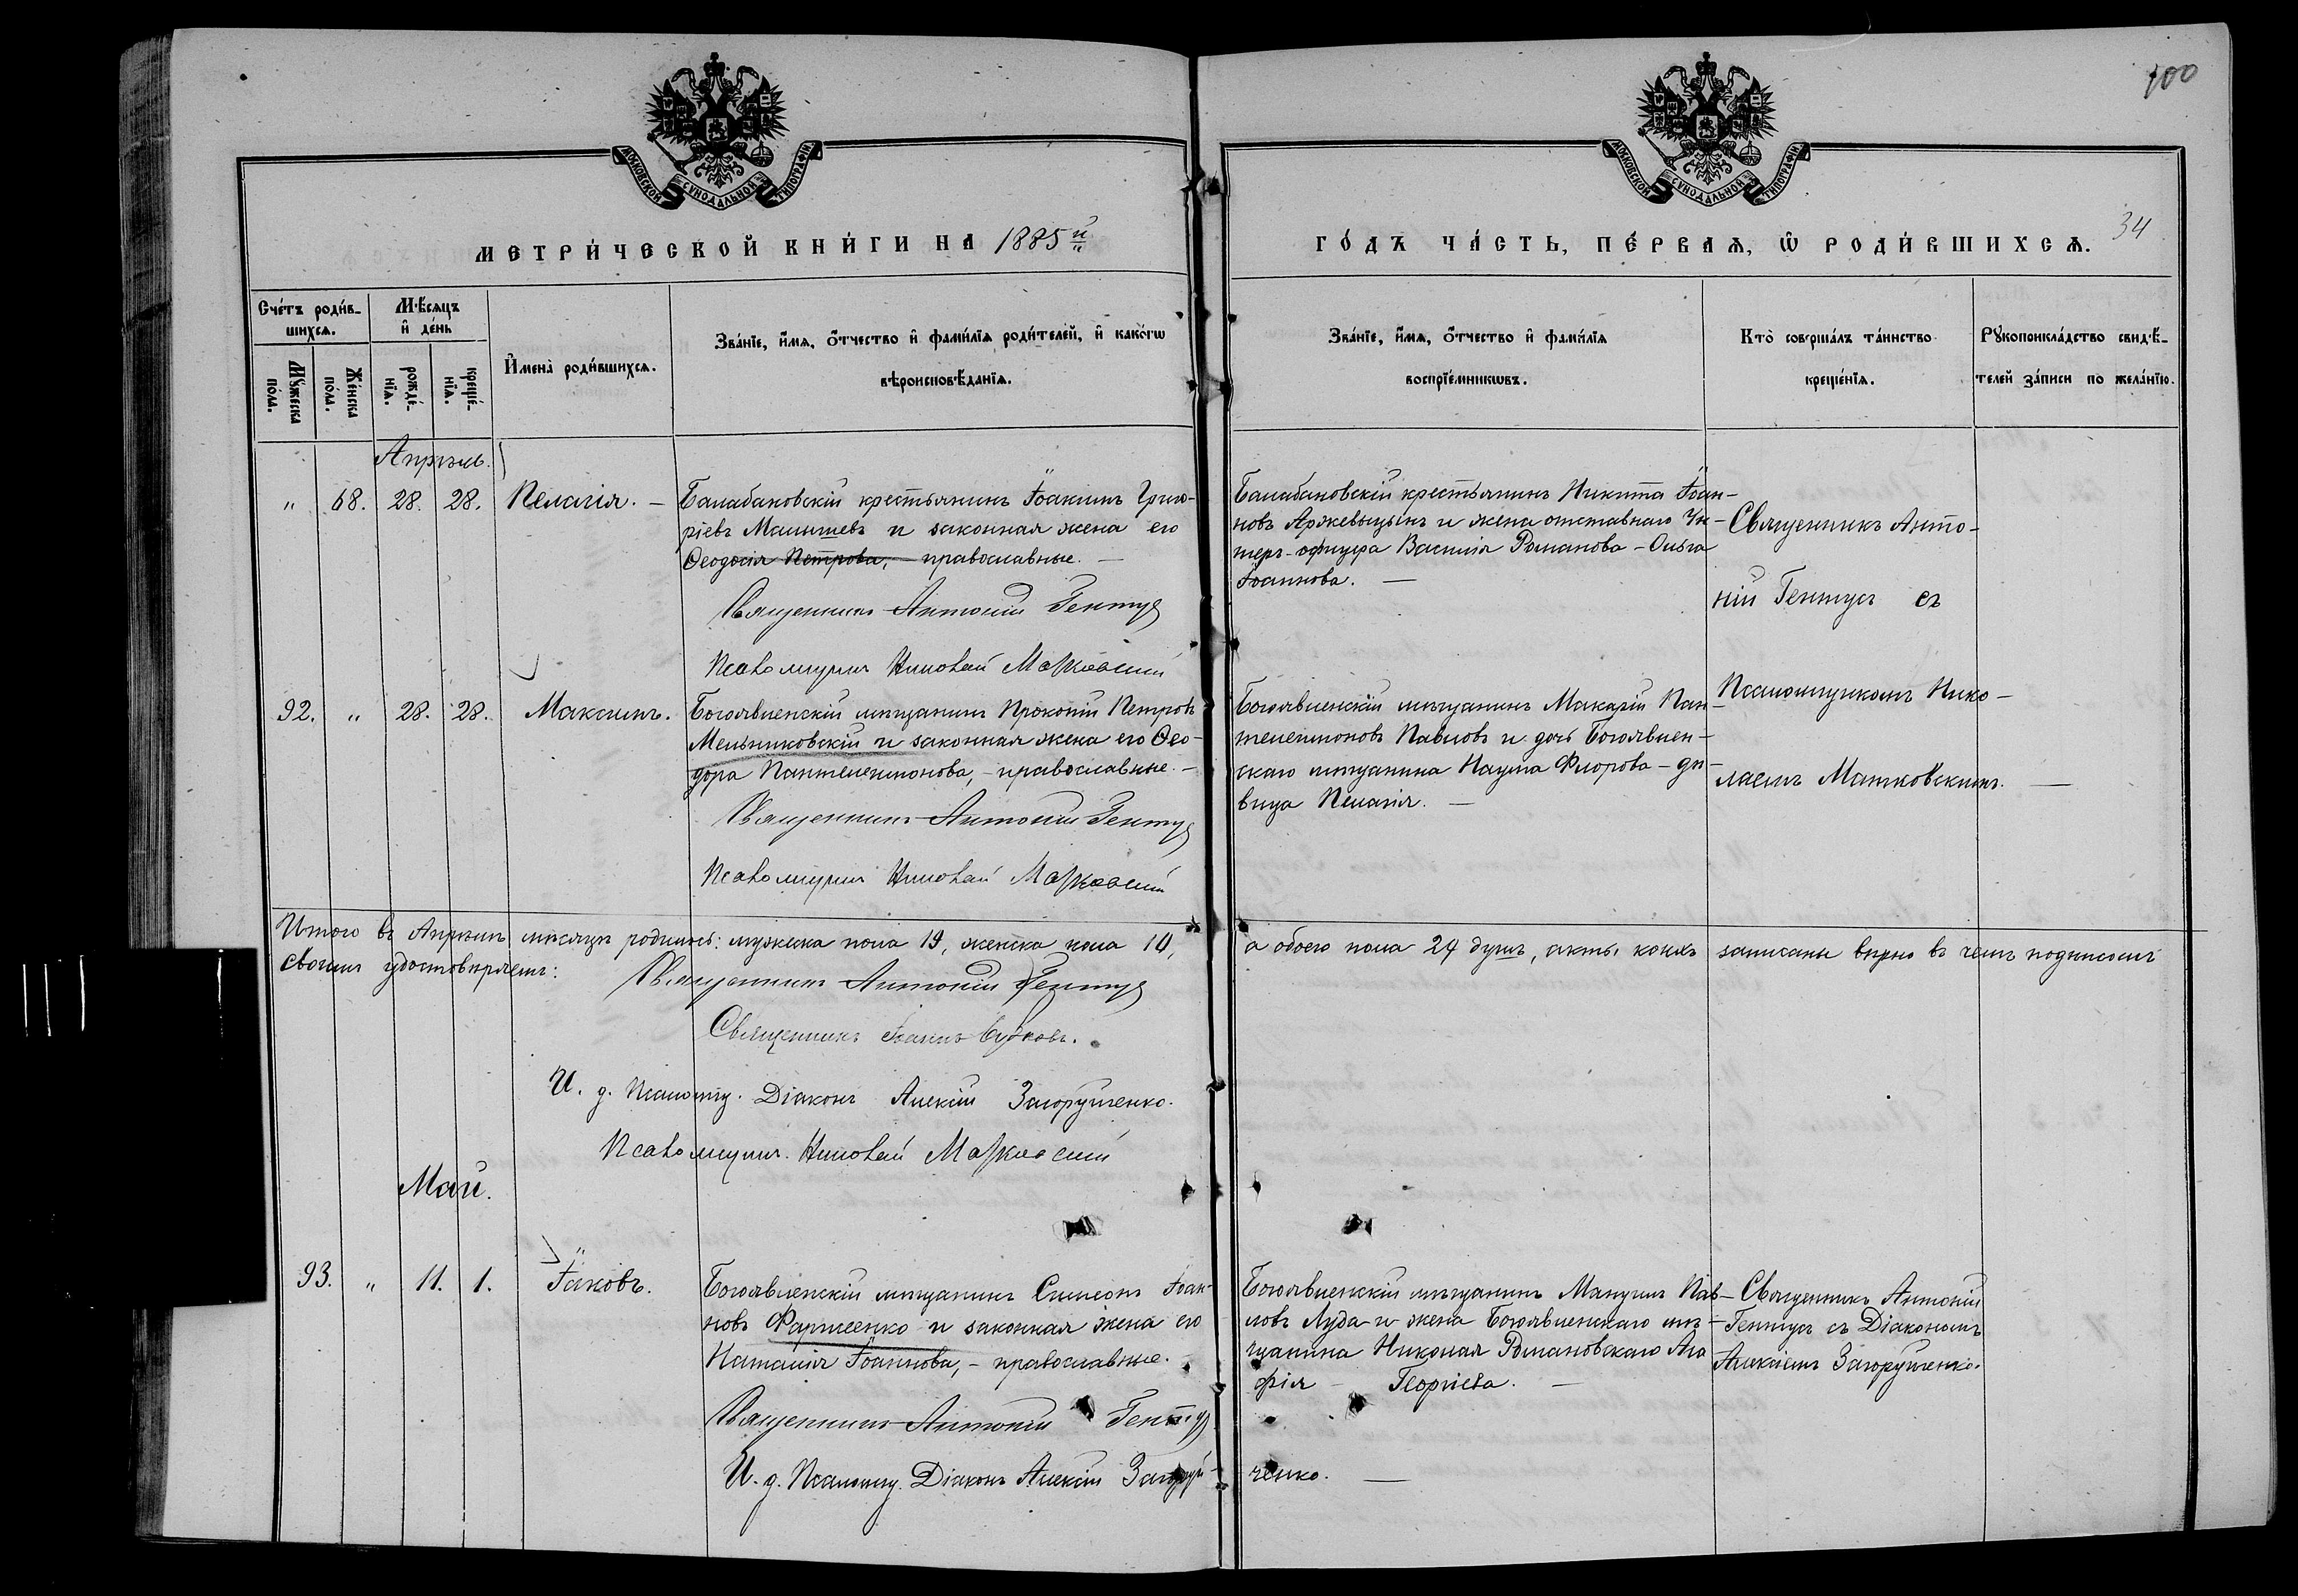 100
МОСКОВСКОЙ СѴНОДАЛЬНОЙ ТИПОГРАФІИ
МОСКОВСКОЙ СѴНОДАЛЬНОЙ ТИПОГРАФІИ
МЕТРИ́ЧЕСКОЙ КНИ́ГИ НА 1885й
ГО́ДЪ ЧА́СТЬ, ПЕ́РВАѦ, Ѡ РОДИ́ВШИХСѦ. 34
Сче́тъ роди́в-шихсѧ.
Мꙋ́жеска по́ла.
Же́нска по́ла.
Мѣ́сѧцъ и҆ де́нь
рожде́-нїѧ.
креще́-нїѧ.
И҆мена̀ роди́вшихсѧ.
Зва́нїе, и҆́мѧ, ѻ҆́тчество и҆ фами́лїѧ роди́телей, и҆ како́гѡ
вѣроисповѣ́данїѧ.
Зва́нїе, и҆́мѧ, ѻ҆́тчество и҆ фами́лїѧ
воспрїе́мникѡвъ.
Кто̀ соверша́лъ та́инство
креще́нїѧ.
Рꙋкоприкла́дство свидѣ́-
телей за́писи по жела́нїю.
Апрѣль.
" 68. 28. 28. Пелагія. —
Балабановскій крестьянинъ Іоакимъ Григо-
ріевъ Малышевъ и законная жена его
Ѳеодосія Петрова, — православные. —
Священникъ Антоній Гентуз
Псаломщикъ Николай Матковскій
Балабановскій крестьянинъ Никита Іоан-
новъ Аржевицынъ и жена отставнаго Ун-
теръ-офицера Василія Романова — Ольга
Іоаннова. —
Священникъ Анто-
ній Гентузъ съ
Псаломщикомъ Нико-
лаемъ Матковскимъ. —
92. " 28. 28. Максимъ.
Богоявленскій мѣщанинъ Прокопій Петровъ
Мельниковскій и законная жена его Ѳео-
дора Пантелеимонова, — православные. —
Священникъ Антоній Гентуз
Псаломщикъ Николай Матковскій
Богоявленскій мѣщанинъ Макарій Пан-
телеимоновъ Павловъ и дочь Богоявлен-
скаго мѣщанина Наума Флорова — дѣ-
вица Пелагія. —
Итого въ Апрѣлѣ мѣсяцѣ родилось: мужеска пола 19, женска пола 10, а обоего пола 29 душъ, акты коихъ записаны вѣрно въ чемъ подписомъ
своимъ удостовѣряемъ:
Священникъ Антоній Гентуз
Священникъ Іоаннъ
И. д. Псаломщ. Діаконъ Алексій Загоруйченко.
Псаломщикъ Николай Матковскій
Май.
93. " 11. 1. Іаковъ.
Богоявленскій мѣщанинъ Симеонъ Іоан-
новъ Фартеенко и законная жена его
Наталія Іоаннова, — православные. —
Священникъ Антоній Гентуз
И. д. Псаломщ. Діаконъ Алексій Загоруй-
ченко. —
Богоявленскій мѣщанинъ Мануилъ Пав-
ловъ Луда и жена Богоявленскаго мѣ-
щанина Николая Романовскаго Ага
фія — Георгіева. —
Священникъ Антоній
Гентузъ съ Діакономъ
Алексіемъ Загоруйченко.